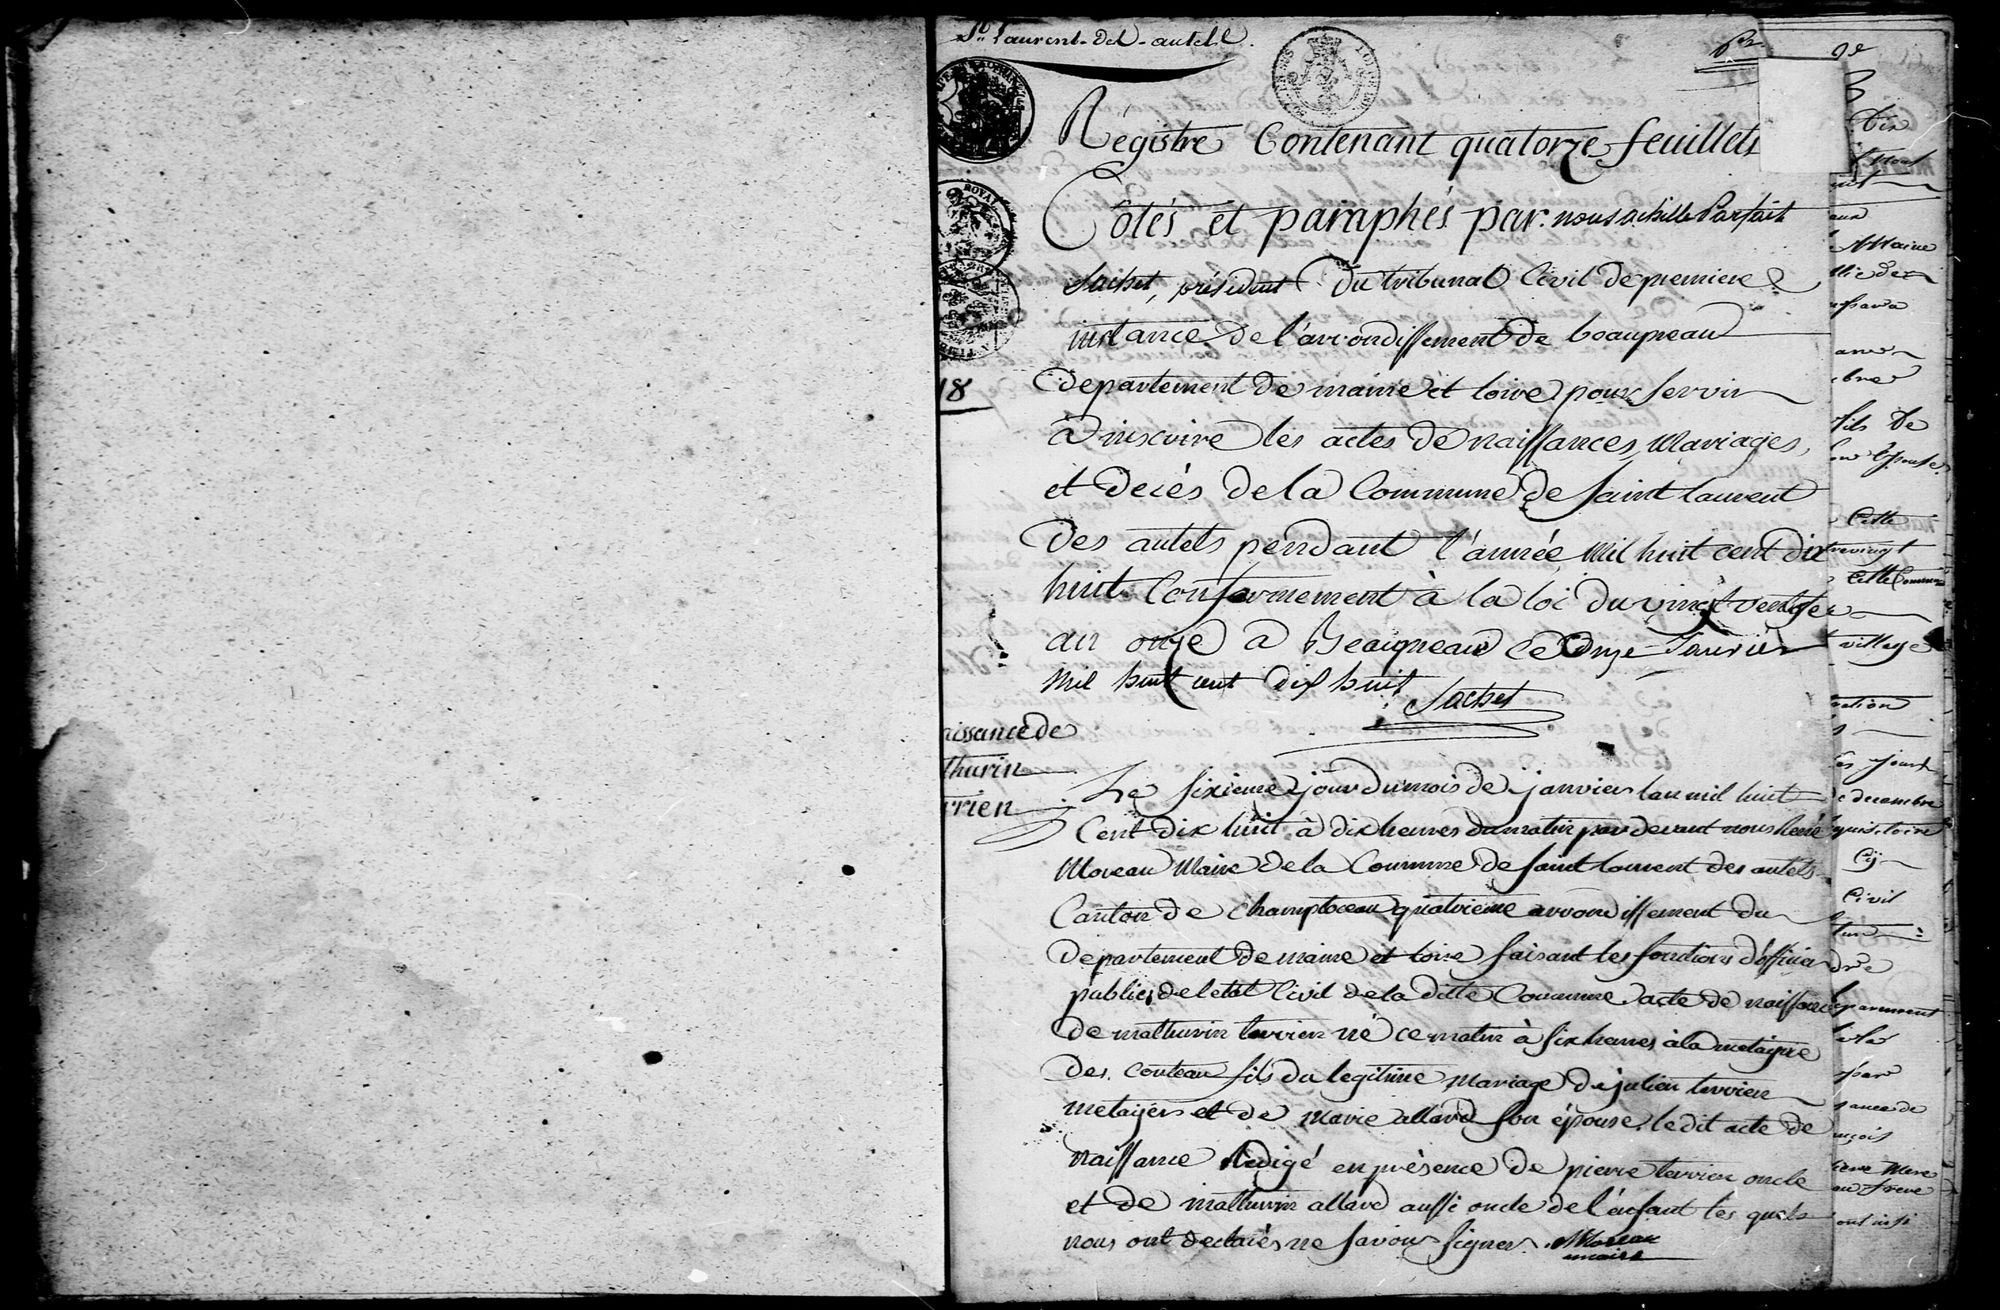 St Laurent-des-autels.
Registre Contenant quatorze feuillets
Côtés et paraphés par. nous achille Parfait
Sachet, président Du tribunal Civil de premiere
instance de l'arrondissement de beaupreau
departement de maine et loire pour servir
à inscrire les actes de naissances, Mariages,
et decès de la Commune de Saint laurent
des autels pendant l'année Mil huit cent dix
huit Conformement à la loi du vingt ventose
an onze a Beaupreau ce Onze Janvier
Mil huit cent dix huit
Sachet
18
issance de
thurin
rrien
Le sixieme jour du mois de janvier lan mil huit
Cent dix huit à dix heures du matin par devant nous René
Moreau Maire de la Commune de saint laurent des autels
Canton de champtoceau quatrieme arrondissement du
departement de maine et loire faisant les fonctions d'officier
public de letat Civil de la ditte Commune acte de naissance
de mathurin terrien né ce matin à six heures à la metairie
des. couteau fils du legitime mariage de julien terrien
metayer et de Marie allard son épouse, le dit acte de
naissance Redigé en présence de pierre terrien oncle
et de mathurin allard aussi oncle de l'enfant les quels
nous ont declarés ne savoir signer. Moreau
maire
Dix
Maine
fils De
son Epouse
Cette
Cette Commune
village
jours
decembre
Cy
Civil